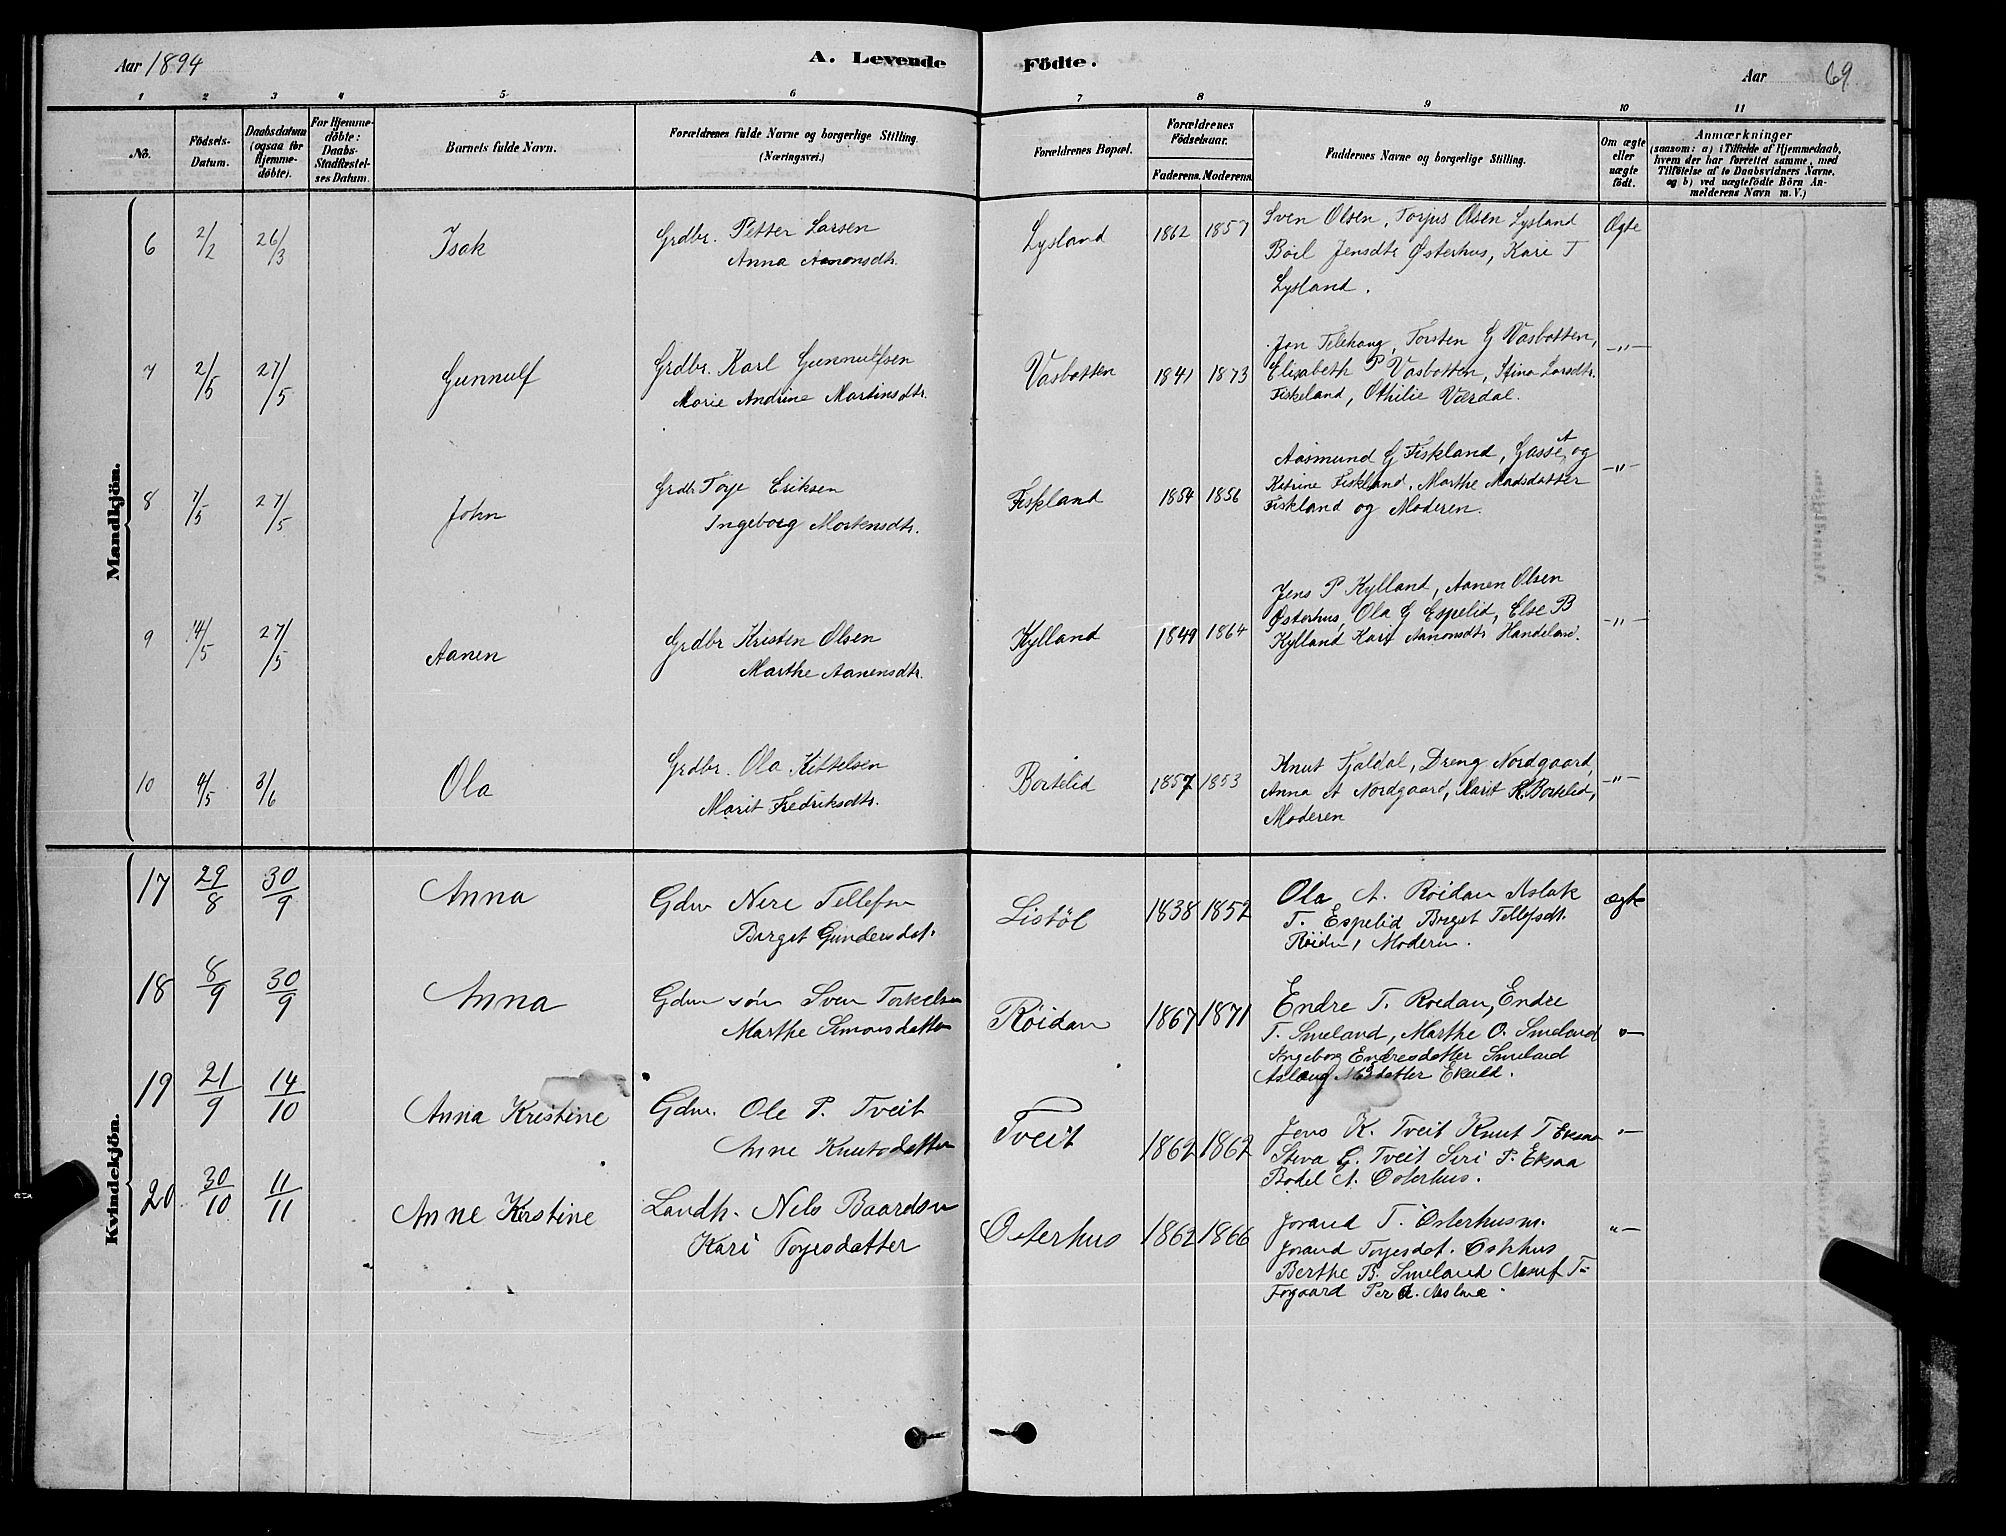 Aar 1894
A. Levende Födte.
Aar 69.
1 2 3 4 5 6 7 8 9 10 11
No.
Födsels-Datum.
Daabsdatum (ogsaa for Hjemme-döbte).
For Hjemme-döbte: Daabs-Stadfæstel-ses Datum.
Barnets fulde Navn.
Forældrenes fulde Navne og borgerlige Stilling. (Næringsvei.)
Forældrenes Bopæl.
Forældrenes Födselsaar.
Faderens. Moderens.
Faddernes Navne og borgerlige Stilling.
Om ægte eller uægte födt.
Anmærkninger
(saasom: a) i Tilfælde af Hjemmedaab, hvem der har forrettet samme, med Tilföielse af to Daabsvidners Navne, og b) ved uægtefödte Börn An-melderens Navn m. V.)
Mandkjön.
6 2/2 26/3 Isak Grdbr. Petter Larsen
Anna Aanonsdtr.
Lysland 1862 1857
Sven Olsen, Torjus Olsen Lysland
Böil Jensdtr Østerhus, Kari T
Lysland.
Ægte
7 2/5 27/5 Gunnulf Grdbr. Karl Gunnulfsen
Marie Andrine Martinsdtr.
Vasbotten 1841 1873
Jon Telehaug, Torsten G Vasbotten,
Elisabeth P Vasbotten, Stina Larsdtr.
Fiskeland, Othilie Værdal.
-"-
8 7/5 27/5 John Grdbr Toye Eriksen
Ingeborg Mortensdtr.
Fiskland 1854 1856
Aasmund G Fiskland, Gasse A og
Katrine Fiskland, Marthe Madsdatter
Fiskland og Moderen.
-"-
9 14/5 27/5 Aanen Grdbr Kristen Olsen
Marthe Aanensdtr.
Kylland 1849 1864
Jens P Kylland, Aanen Olsen
Østerhus, Ola G Espelid, Else B
Kylland Kari Aanonsdtr Handeland.
-"-
10 4/5 3/6 Ola Grdbr. Ola Kittelsen
Marit Fredriksdtr.
Bortelid 1857 1853
Knut Fjaldal, Dreng Nordgaard,
Anna A Nordgaard, Marit K. Bortelid,
Moderen
-"-
Kvindekjön.
17 29/8 30/9 Anna Gdm Nere Tellefsen
Birget Gundersdat.
Listöl 1838 1852
Ola A. Röidan Aslak
T. Espelid Birget Tellefsdt.
Röidn, Moderen.
ægte
18 8/9 30/9 Anna Gdm sön Sven Torkelsen
Marthe Simonsdatter
Röidan 1867 1871
Endre T. Roedan, Endre
T. Smeland, Marthe O. Smeland
Ingeborg Endresdatter Smeland
Aslaug datter
"-
19 21/9 14/10 Anna Kristine Gdm. Ole P. Tveit
Anne Knutsdatter
Tveit 1862 1862
Jens K. Tveit Knut T Eksaa
G. Tveit Siri P. Eksaa
Bodel A. Osterhus.
"-
20 30/10 11/11 Anne Kirstine Landh. Nels Baardsen
Kari Toyesdatter
Osterhus 1862 1866
Jorand T. Osterhusm.
Jorand Toyesdat. Osthus
Berthe B. Smeland T
Fogaard Per
"-